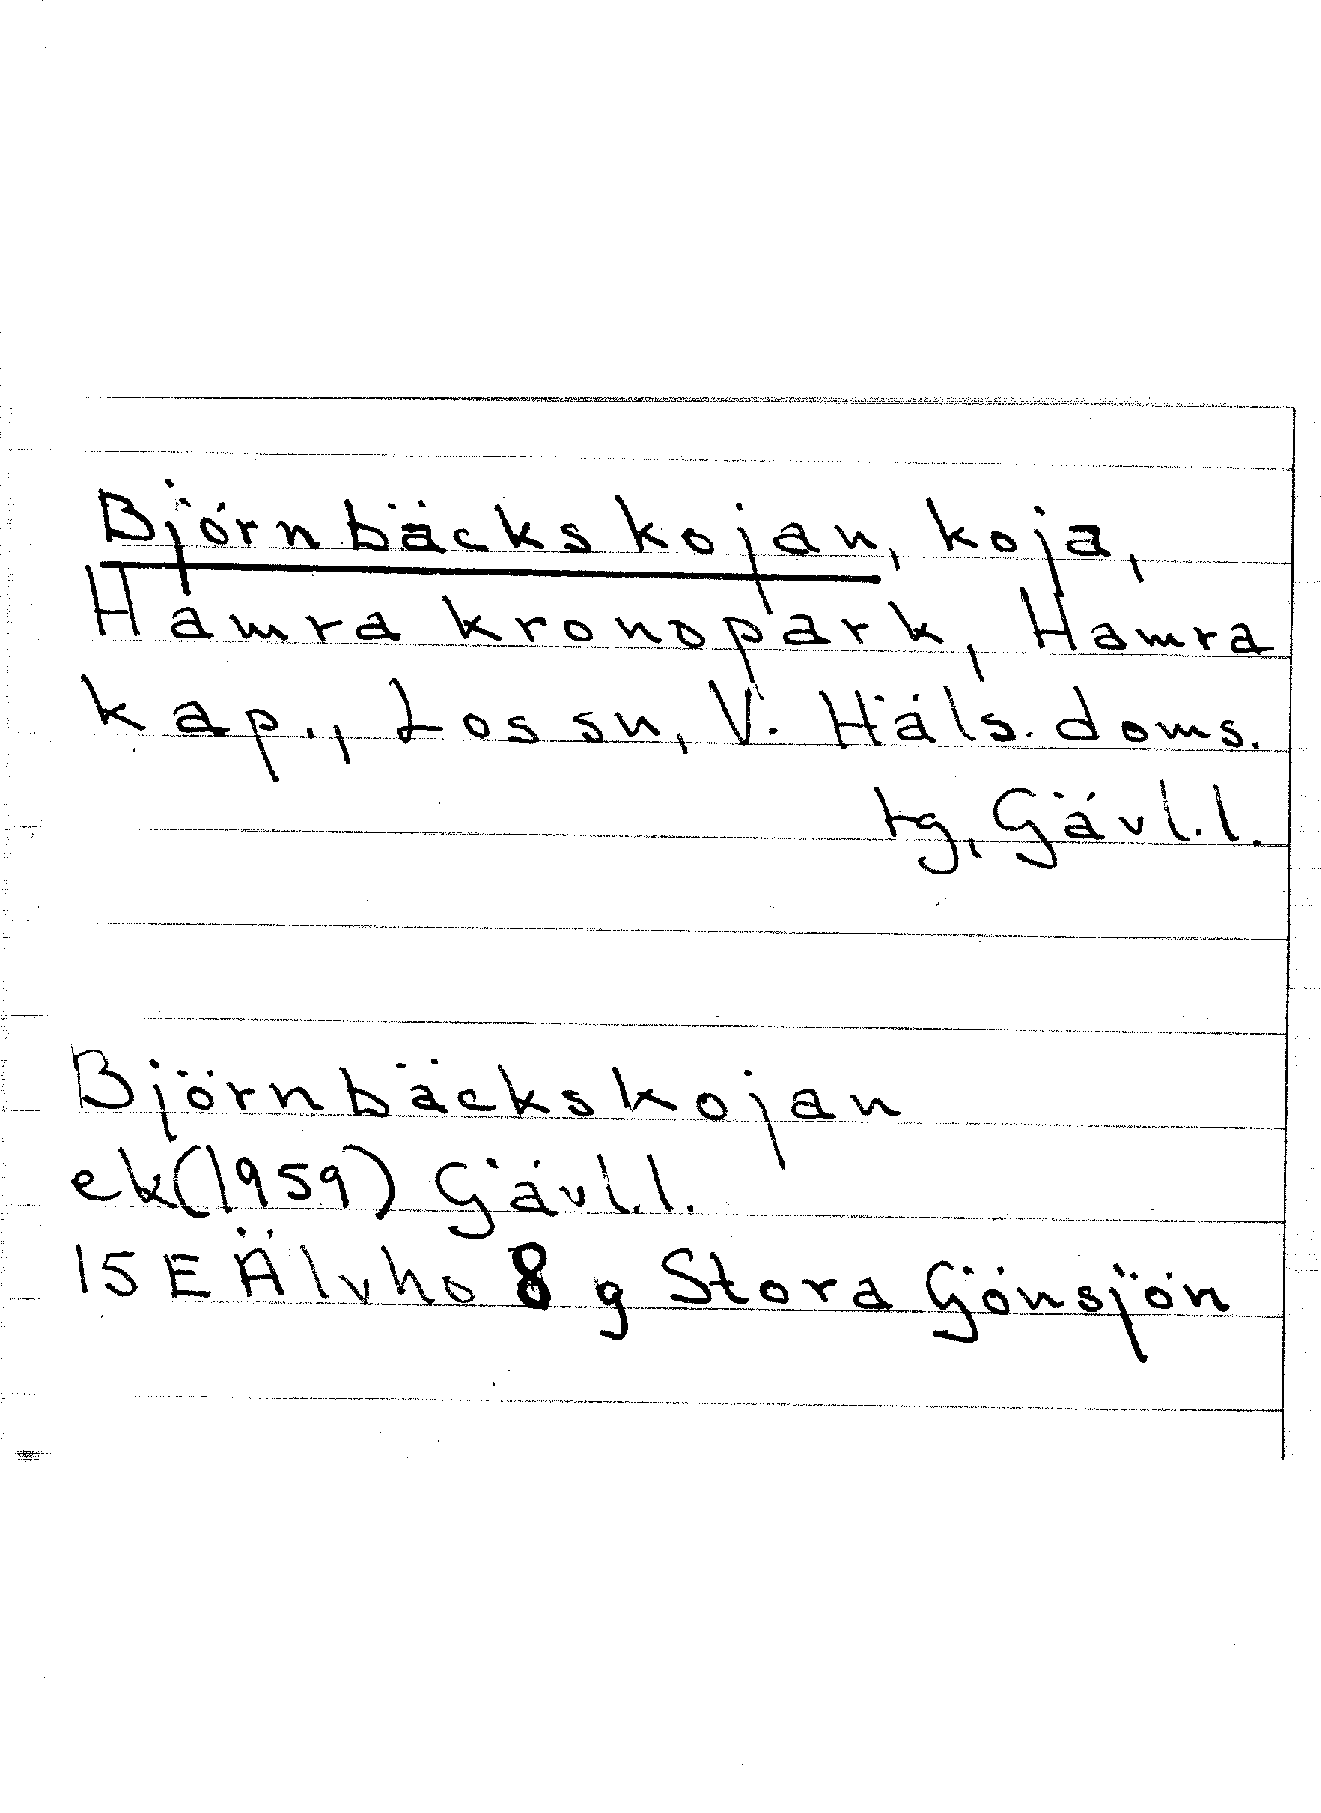 Björnbäckskojan, koja,
Hamra kronopark, Hamra
kap., Los sn, V. Häls. doms.
tg, Gävl.l.
Björnbäckskojan
ek(1959) Gävl.l.
15E Älvho 8 g Stora Gönsjön